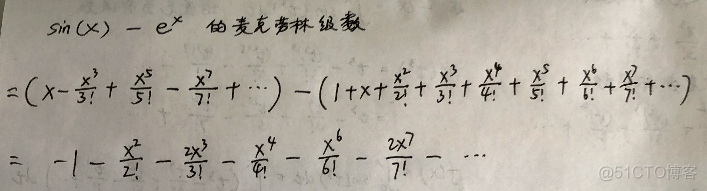 sin(x) - eˣ 的麦克劳林级数
= (x - x³/3! + x⁵/5! - x⁷/7! + ⋯) - (1 + x + x²/2! + x³/3! + x⁴/4! + x⁵/5! + x⁶/6! + x⁷/7! + ⋯)
= -1 - x²/2! - 2x³/3! - x⁴/4! - x⁶/6! - 2x⁷/7! - ⋯
@51CTO博客